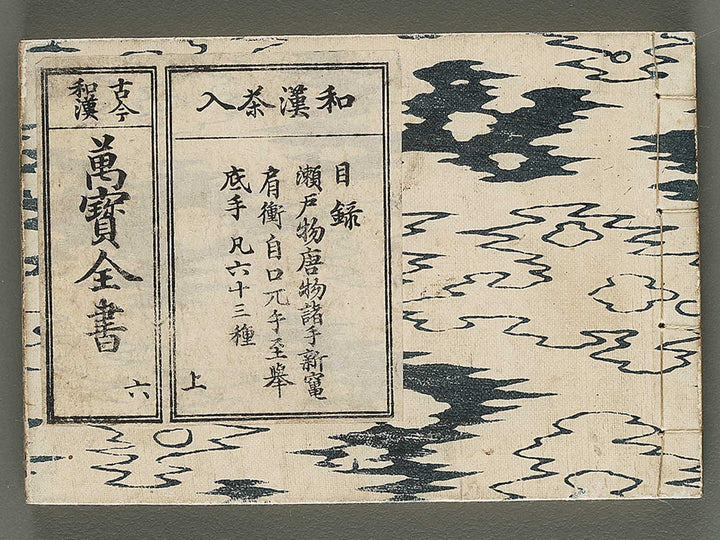 古今
和漢
萬寳全書
六
和漢茶入
目録
瀬戸物唐物諸手新竃
肩衝自口兀手至
底手凡六十三種
上